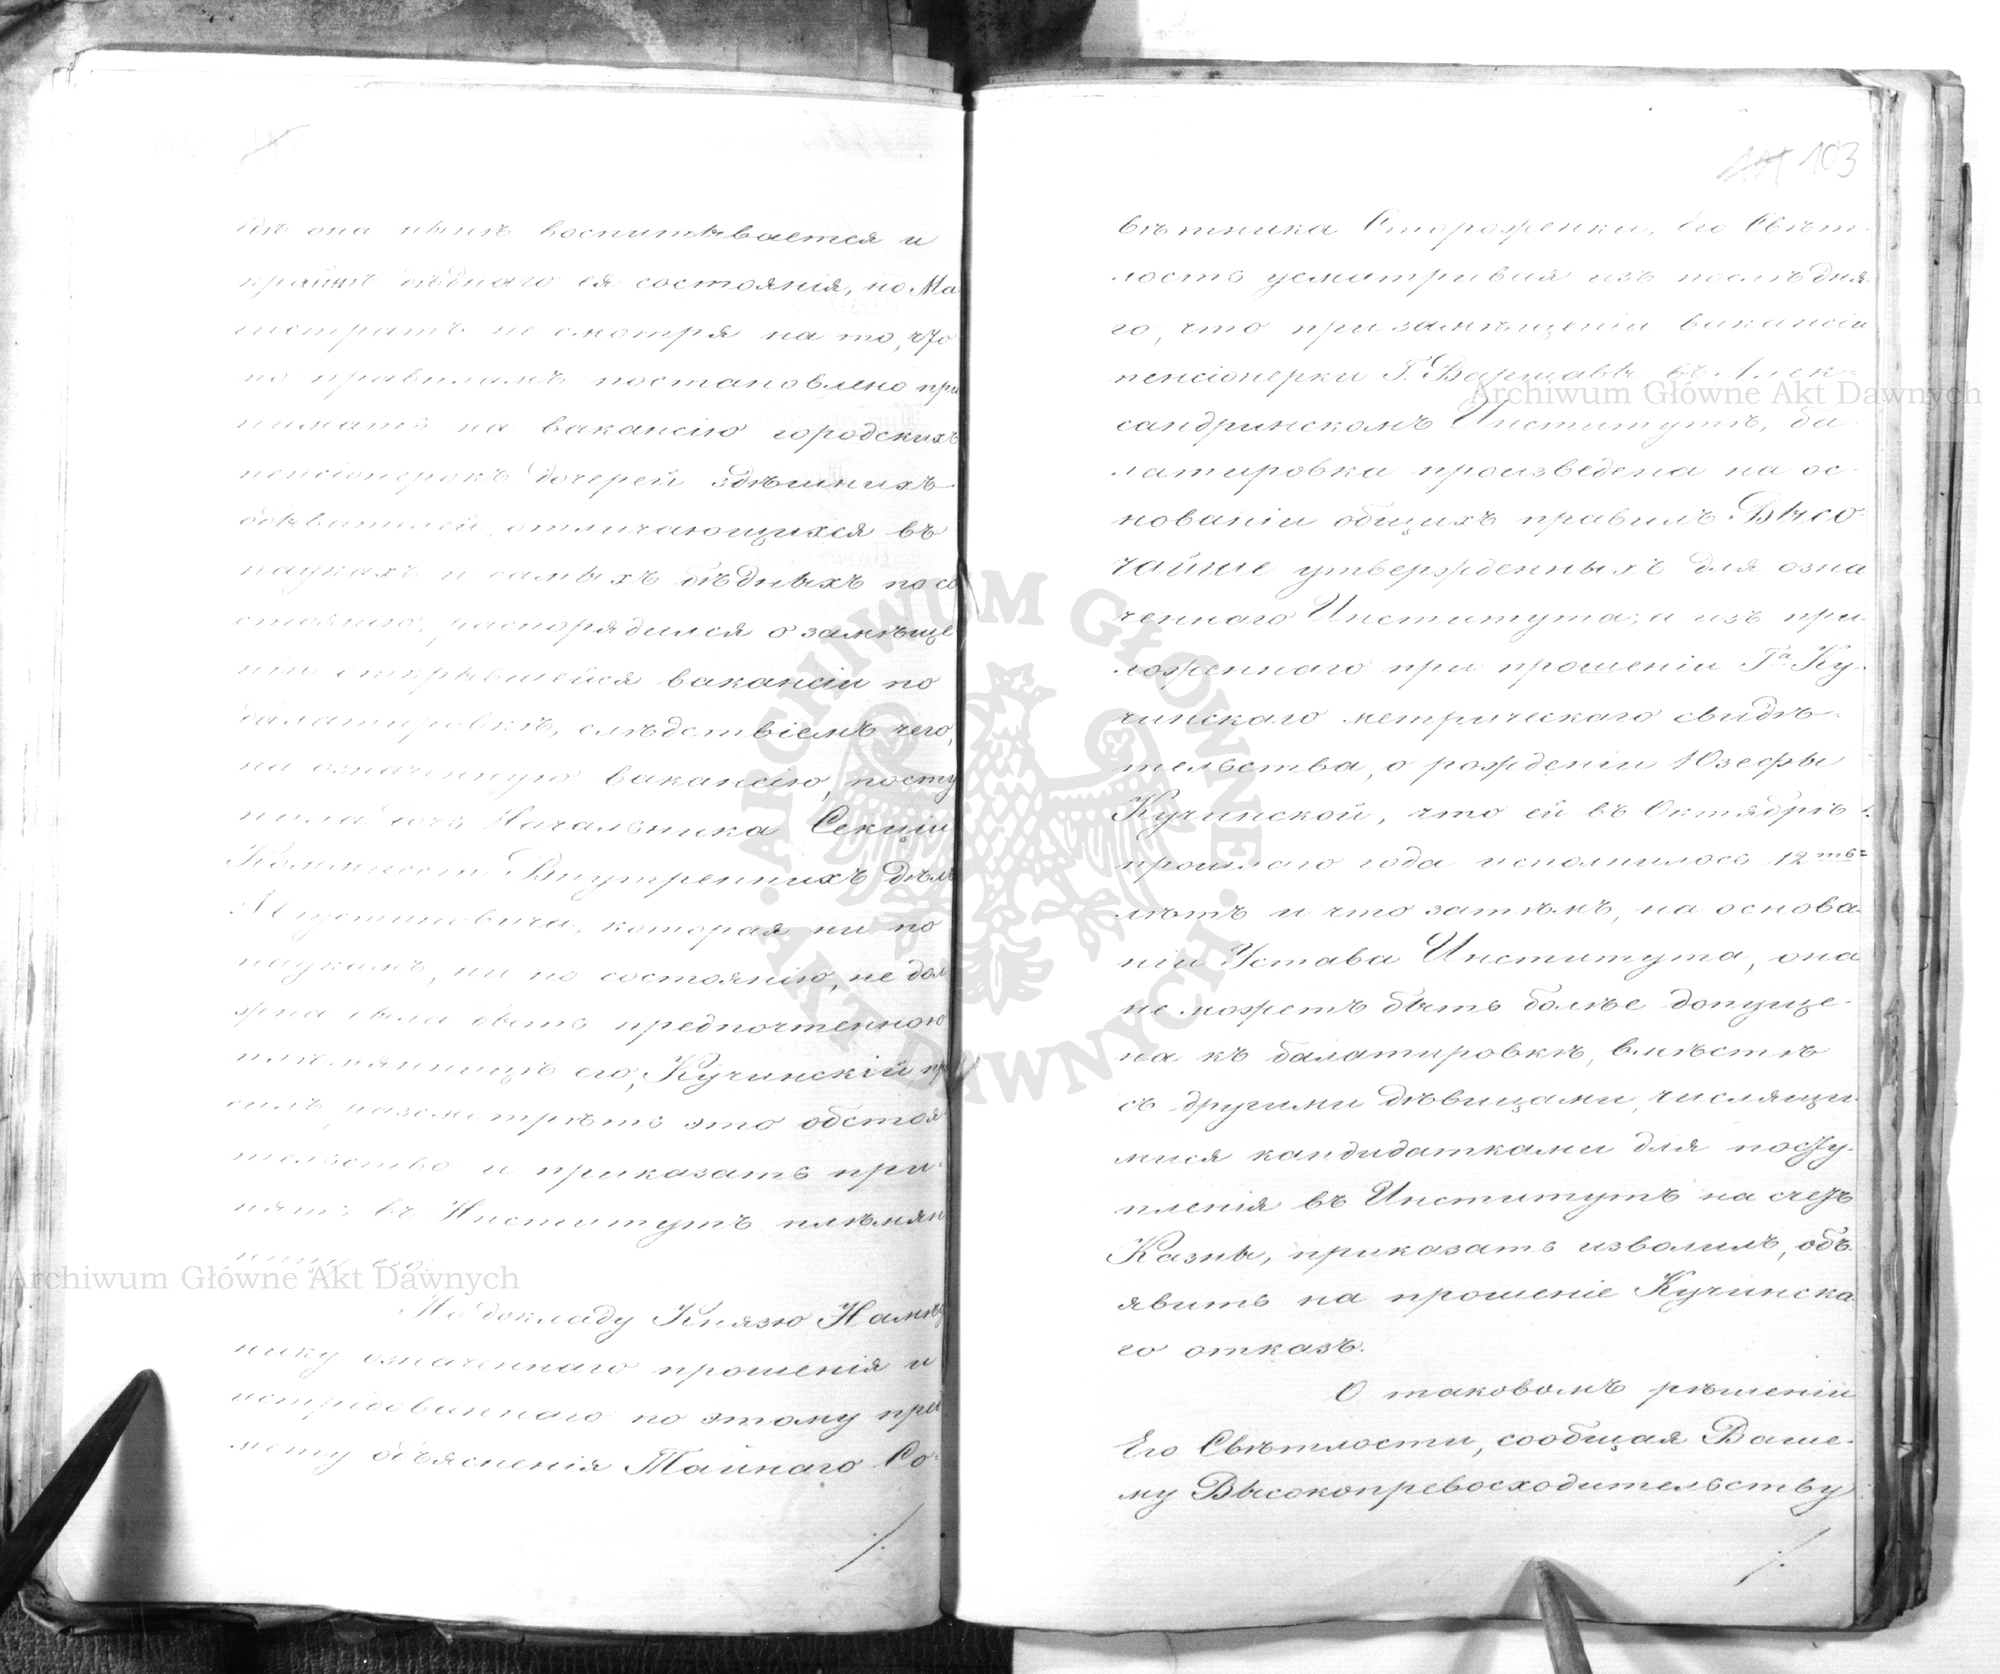 гдѣ она нынѣ воспитывается и
крайнѣ бѣднаго ея состоянія, но Ма-
гистратъ не смотря на то, что
по правиламъ постановлено при
нимать на вакансію городскихъ
пенсіонерокъ дочерей здѣшнихъ
обывателей, отличающихся въ
наукахъ и самыхъ бѣдныхъ по со
стоянію, распорядился о замѣще
ніи открывшейся вакансіи по
балатировкѣ, слѣдствіемъ чего,
на означенную вакансію, посту
пила дочь Начальника Секціи
Коммисіи Внутреннихъ Дѣлъ
Августиновича, которая ни по
наукамъ, ни по состоянію, не дол
жна была быть предпочтенною
племянницѣ его, Кучинскій про
силъ разсмотрѣть это обстоя
тельство и приказать при-
нять въ Институтъ племян
ницу его.
По докладу Князю Намѣст
нику означеннаго прошенія и
истребованнаго по этому пред
мету объясненія Тайнаго Со-
103
вѣтника Стороженки, Его Свѣт-
лость усматривая изъ послѣдня-
го, что при замѣщеніи вакансіи
пенсіонерки Г. Варшавы въ Алек-
сандринскомъ Институтѣ, ба-
латировка произведена на ос-
нованіи общихъ правилъ Высо-
чайше утвержденныхъ для озна
ченнаго Института; а изъ при-
ложеннаго при прошеніи Га Ку-
чинскаго метрическаго свидѣ-
тельства, о рожденіи Юзефы
Кучинской, что ей въ Октябрѣ
прошлаго года исполнилось 12ть
лѣтъ и что затѣмъ, на основа-
ніи Устава Института, она
не можетъ быть болѣе допуще-
на къ балатировкѣ, вмѣстѣ
съ другими дѣвицами, числящи-
мися кандидатками для посту-
пленія въ Институтъ на счетъ
Казны, приказать изволилъ, объ-
явить на прошеніе Кучинска-
го отказъ.
О таковомъ рѣшеніи
Его Свѣтлости, сообщая Ваше-
му Высокопревосходительству
Archiwum Główne Akt Dawnych
Archiwum Główne Akt Dawnych
ARCHIWUM GŁÓWNE
AKT DAWNYCH